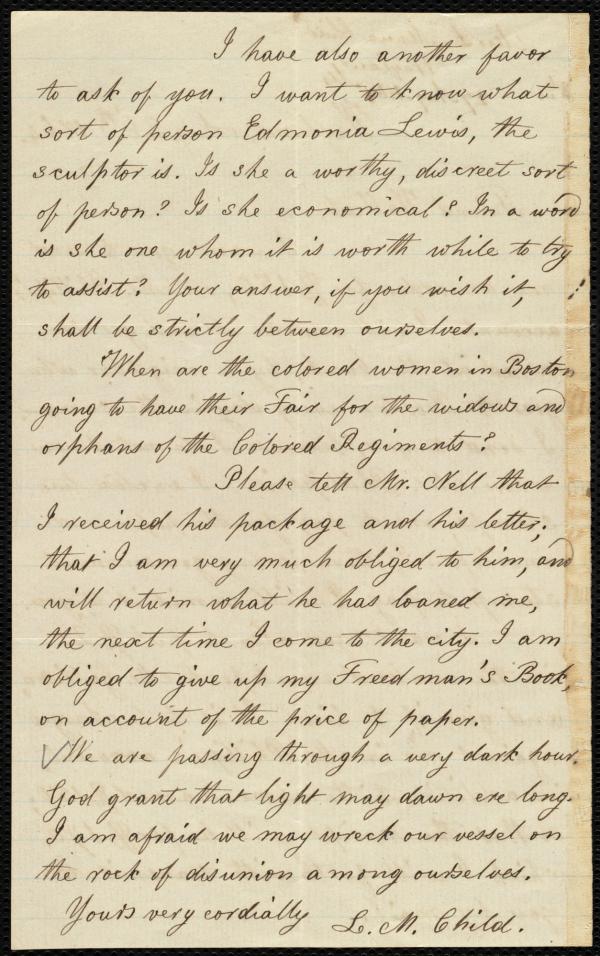 I have also another favor
to ask of you. I want to know what
sort of person Edmonia Lewis, the
sculptor is. Is she a worthy, discreet sort
of person? Is she economical? In a word
is she one whom it is worth while to try
to assist? Your answer, if you wish it,
shall be strictly between ourselves.
When are the colored women in Boston
going to have their Fair for the widows and
orphans of the Colored Regiments?
Please tell Mr. Nell that
I received his package and his letter;
that I am very much obliged to him, and
will return what he has loaned me,
the next time I come to the city. I am
obliged to give up my Freedman's Book,
on account of the price of paper.
We are passing through a very dark hour.
God grant that light may dawn ere long.
I am afraid we may wreck our vessel on
the rock of disunion among ourselves.
Yours very cordially
L. M. Child.